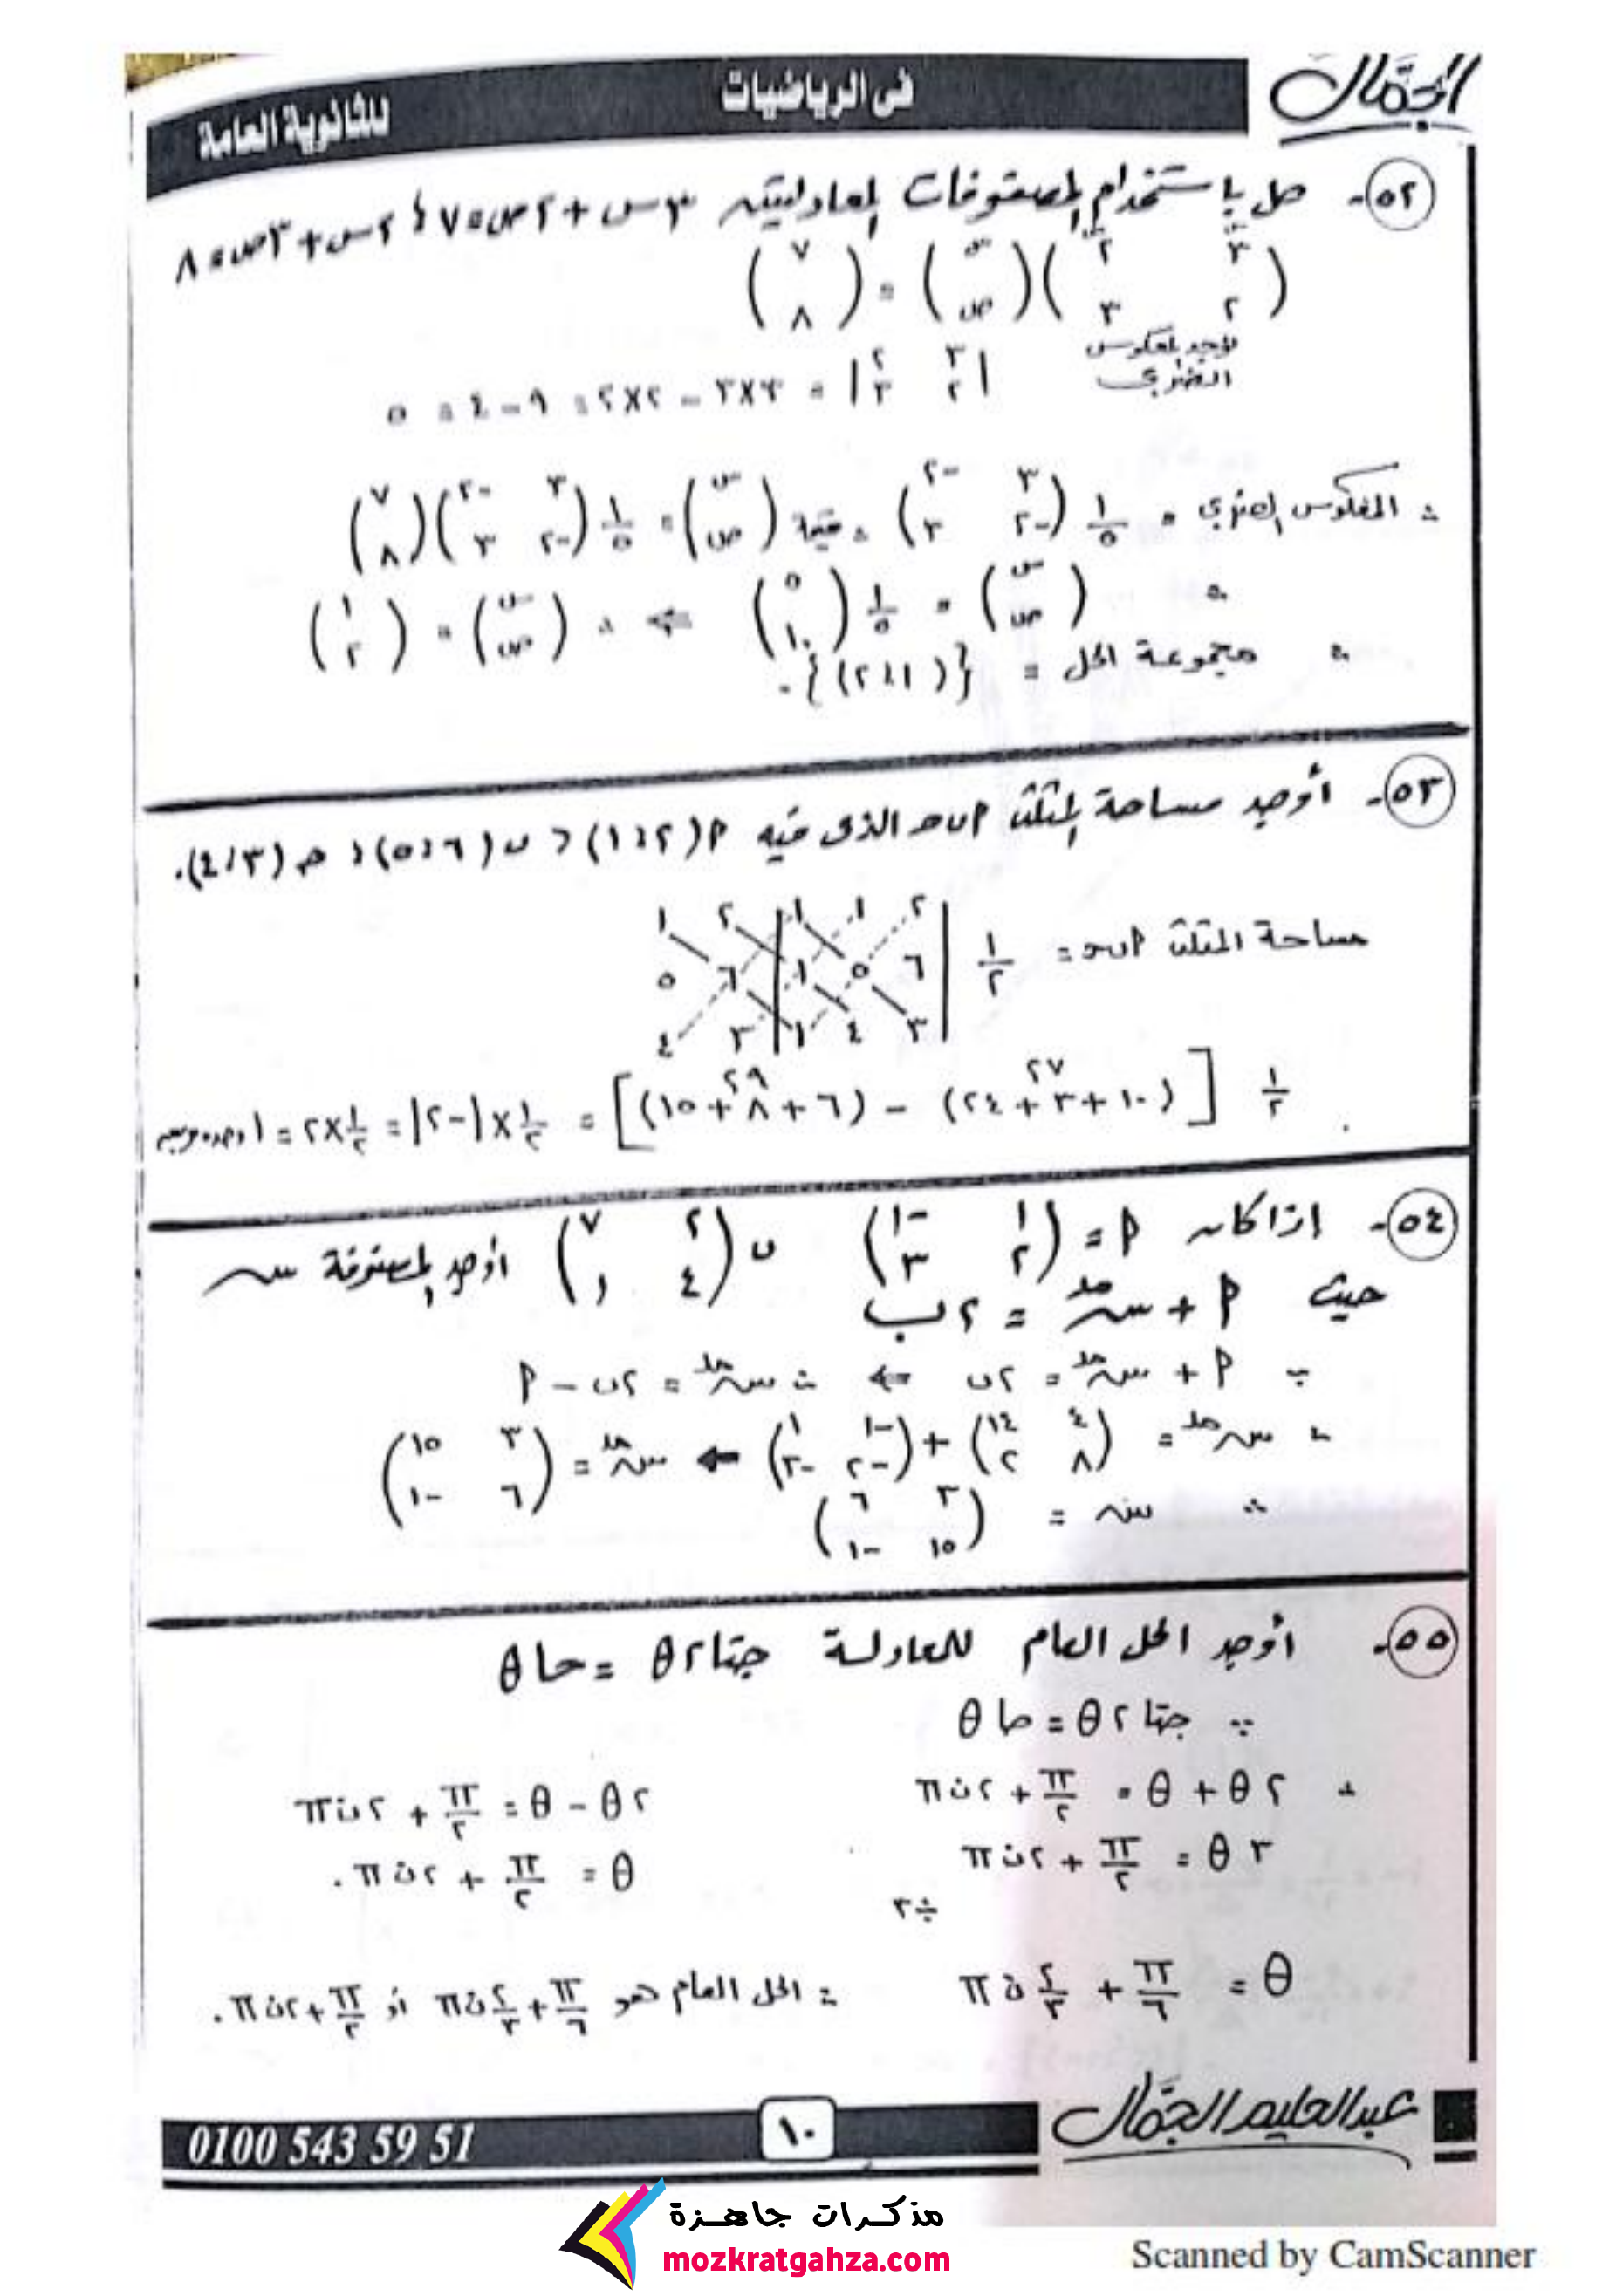 الجمال
فى الرياضيات
للثانوية العامة
٥٢- حل باستخدام المصفوفات المعادلتين ٣س + ٢ص = ٧ ، ٢س + ٣ص = ٨
(٣ ٢ / ٢ ٣) (س / ص) = (٧ / ٨)
نوجد المعكوس الضربي
|٣ ٢ / ٢ ٣| = ٣×٣ - ٢×٢ = ٩ - ٤ = ٥
∴ المعكوس الضربي = ١/٥ (٣ -٢ / -٢ ٣) ∴ (س / ص) = ١/٥ (٣ -٢ / -٢ ٣) (٧ / ٨)
∴ (س / ص) = ١/٥ (٥ / ١٠) ⇐ ∴ (س / ص) = (١ / ٢)
∴ مجموعة الحل = {(١ ، ٢)}.
٥٣- أوجد مساحة المثلث ٩بحـ الذى فيه ٩(٢ ، ١) ، ب(٦ ، ٥) ، حـ(٣ ، ٤).
مساحة المثلث ٩بحـ = ١/٢ |٢ ١ ١ / ٦ ٥ ١ / ٣ ٤ ١| ٢ ١ / ٦ ٥ / ٣ ٤
١/٢ [(١٠ + ٣ + ٢٤) - (٦ + ٨ + ١٥)] = ١/٢ × |-٢| = ١/٢ × ٢ = ١ وحدة مربعة
٢٧ ٢٩
٥٤- إذا كان ٩ = (١ -١ / ٢ ٣) ب (٢ ٧ / ٤ ١) أوجد المصفوفة س
حيث ٩ + س مد = ٢ب
∵ ٩ + س مد = ٢ب ⇐ ∴ س مد = ٢ب - ٩
∴ س مد = (٤ ١٤ / ٨ ٢) + (-١ ١ / -٢ -٣) ⇐ س مد = (٣ ١٥ / ٦ -١)
∴ س = (٣ ٦ / ١٥ -١)
٥٥- أوجد الحل العام للمعادلة جتا ٢θ = حا θ
∵ جتا ٢θ = حا θ
∴ ٢θ + θ = π/٢ + ٢ن π ٢θ - θ = π/٢ + ٢ن π
٣θ = π/٢ + ٢ن π θ = π/٢ + ٢ن π.
÷٣
θ = π/٦ + ٢/٣ ن π ∴ الحل العام هو π/٦ + ٢/٣ ن π أو π/٢ + ٢ن π.
عبدالحليم الجمال
١٠
0100 543 59 51
مذكرات جاهزة
mozkratgahza.com
Scanned by CamScanner